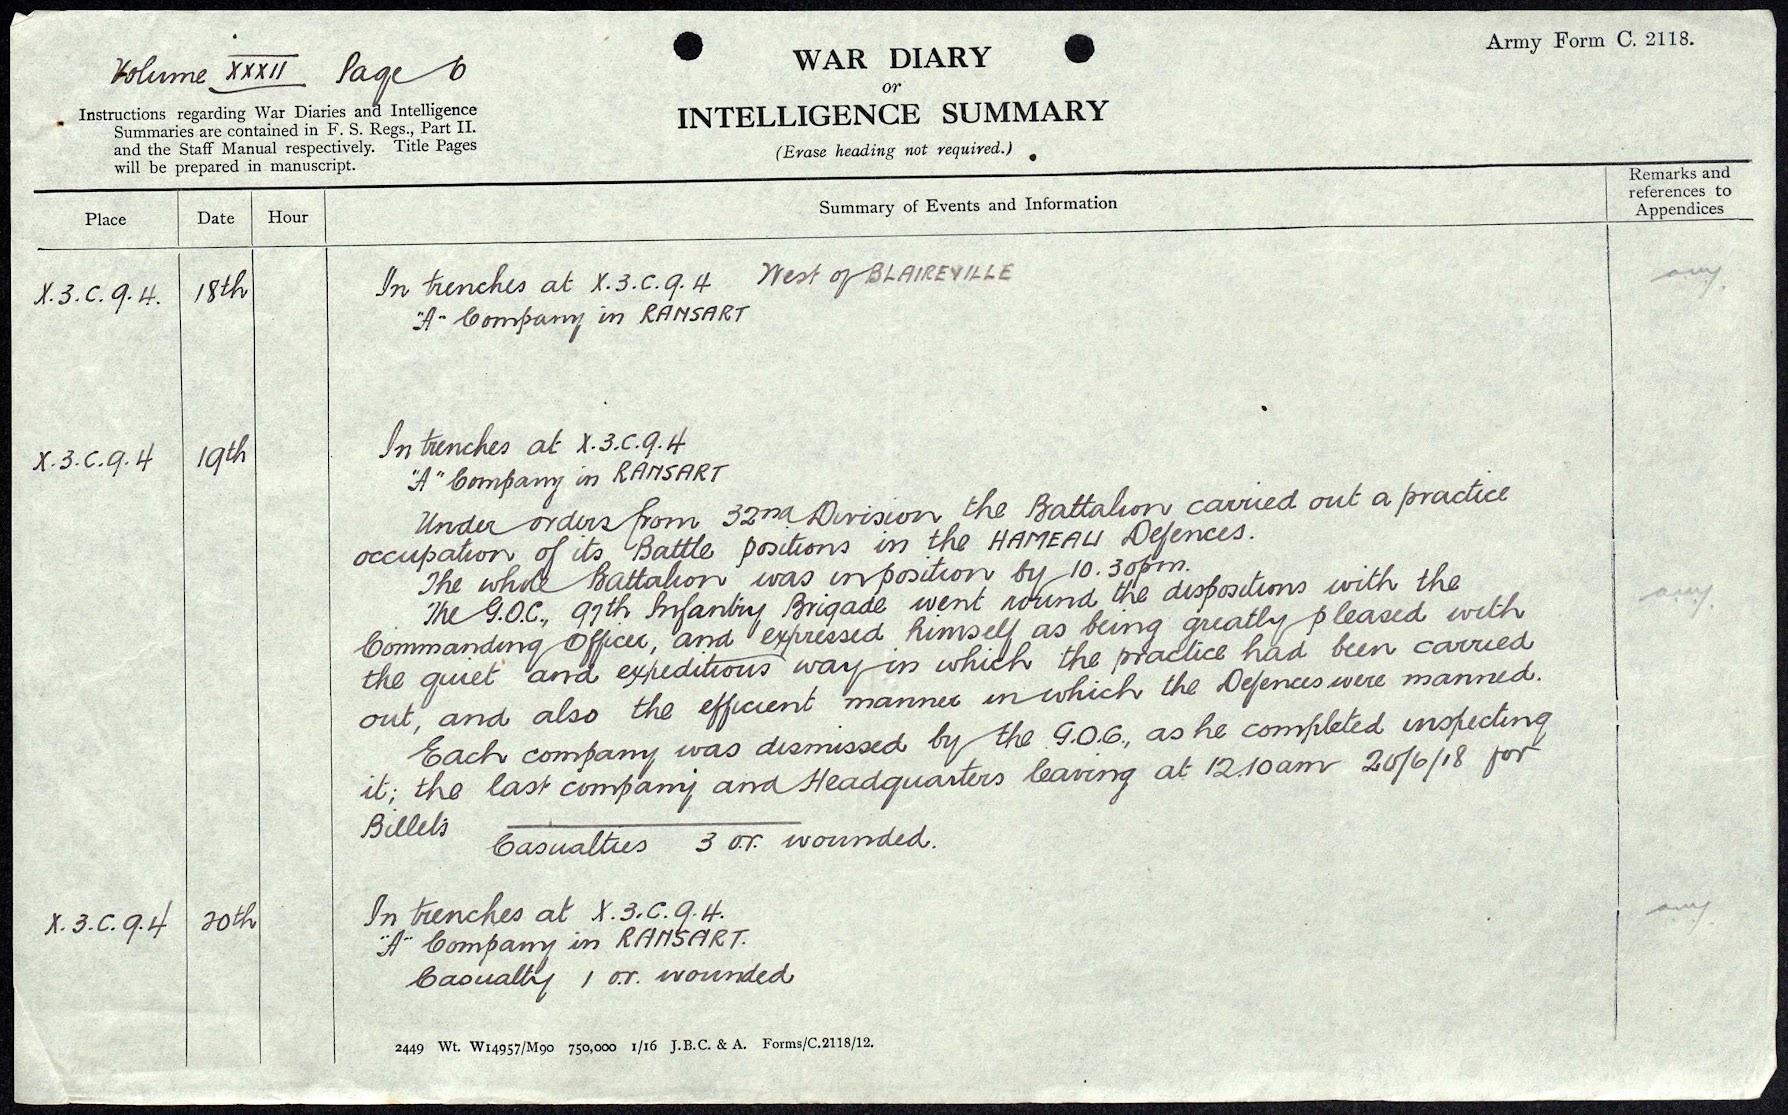 Volume XXXII Page 6
Army Form C. 2118.
WAR DIARY
or
INTELLIGENCE SUMMARY
(Erase heading not required.)
Instructions regarding War Diaries and Intelligence
Summaries are contained in F. S. Regs., Part II.
and the Staff Manual respectively. Title Pages
will be prepared in manuscript.
Place Date Hour Summary of Events and Information Remarks and
references to
Appendices
X.3.C.9.4. 18th In trenches at X.3.C.9.4 West of BLAIREVILLE
"A" Company in RANSART
X.3.C.9.4 19th In trenches at X.3.C.9.4
"A" Company in RANSART
Under orders from 32nd Division the Battalion carried out a practice
occupation of its Battle positions in the HAMEAU Defences.
The whole Battalion was in position by 10.30pm.
The G.O.C., 97th Infantry Brigade went round the dispositions with the
Commanding Officer, and expressed himself as being greatly pleased with
the quiet and expeditious way in which the practice had been carried
out, and also the efficient manner in which the Defences were manned.
Each company was dismissed by the G.O.C., as he completed inspecting
it; the last company and Headquarters leaving at 12.10am 20/6/18 for
Billets
Casualties 3 o.r. wounded.
X.3.C.9.4 20th In trenches at X.3.C.9.4.
"A" Company in RANSART.
Casualty 1 o.r. wounded
2449 Wt. W14957/M90 750,000 1/16 J.B.C. & A. Forms/C.2118/12.